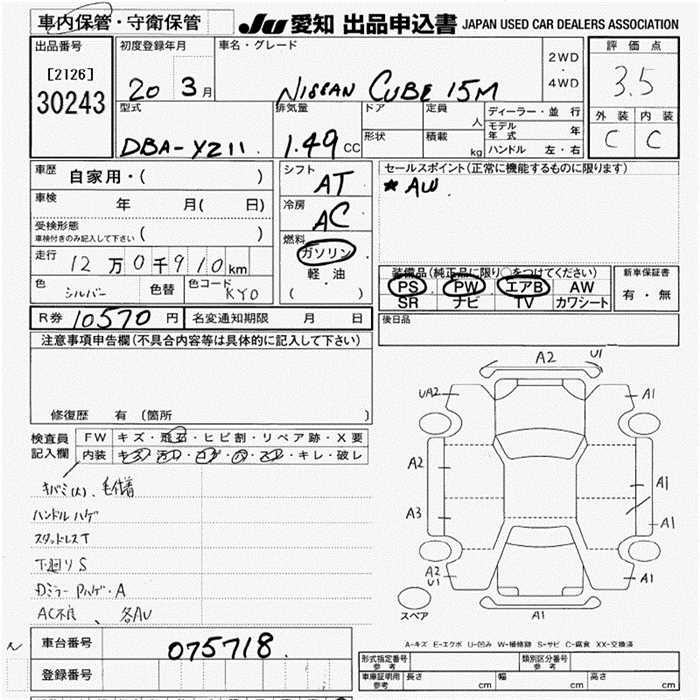 車内保管・守衛保管
JU 愛知 出品申込書 JAPAN USED CAR DEALERS ASSOCIATION
出品番号
[2126]
30243
初度登録年月
20 3月
車名・グレード
NISSAN CUBE 15M
2WD
・
4WD
評価点
3.5
外装 内装
C C
型式
DBA-YZ11
排気量
1.49 CC
ドア
形状
定員 人
積載 kg
ディーラー・並行
モデル年式 年
ハンドル 左・右
車歴 自家用・( )
車検 年 月( 日)
受検形態
車検付きのみ記入して下さい ( )
走行 12万0千910km
色 シルバー 色替 色コード KY0
シフト AT
冷房 AC
燃料
ガソリン
軽・油
( )
セールスポイント(正常に機能するものに限ります)
★ AW
装備品(純正品に限り○をつけてください)
PS PW エアB AW
SR ナビ TV カワシート
新車保証書
有・無
R券 10570円 名変通知期限 月 日
後日品
注意事項申告欄(不具合内容等は具体的に記入して下さい)
修復歴 有 (箇所 )
検査員
記入欄
FW キズ・飛石・ヒビ割・リペア跡・X要
内装 キズ・汚れ・コゲ・穴・スレ・キレ・破レ
ハンドルハゲ
スタッドレスT
下廻りS
DミラーPハゲ・A
AC不良、各AU
A2 U1
UA2 A1
A2 A1
A3 A1
A2
U1 A1
スペア A1
A-キズ E-エクボ U-凹み W-補修跡 S-サビ C-腐食 XX-交換済
車台番号 075718
登録番号
形式指定番号
参考
類別区分番号
参考
車庫証明用
参考
長さ cm 幅 cm 高さ cm